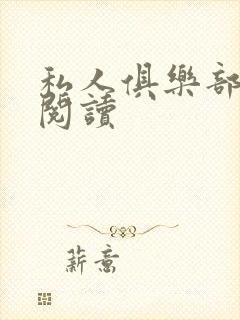 私人俱樂部
閱讀
薪意